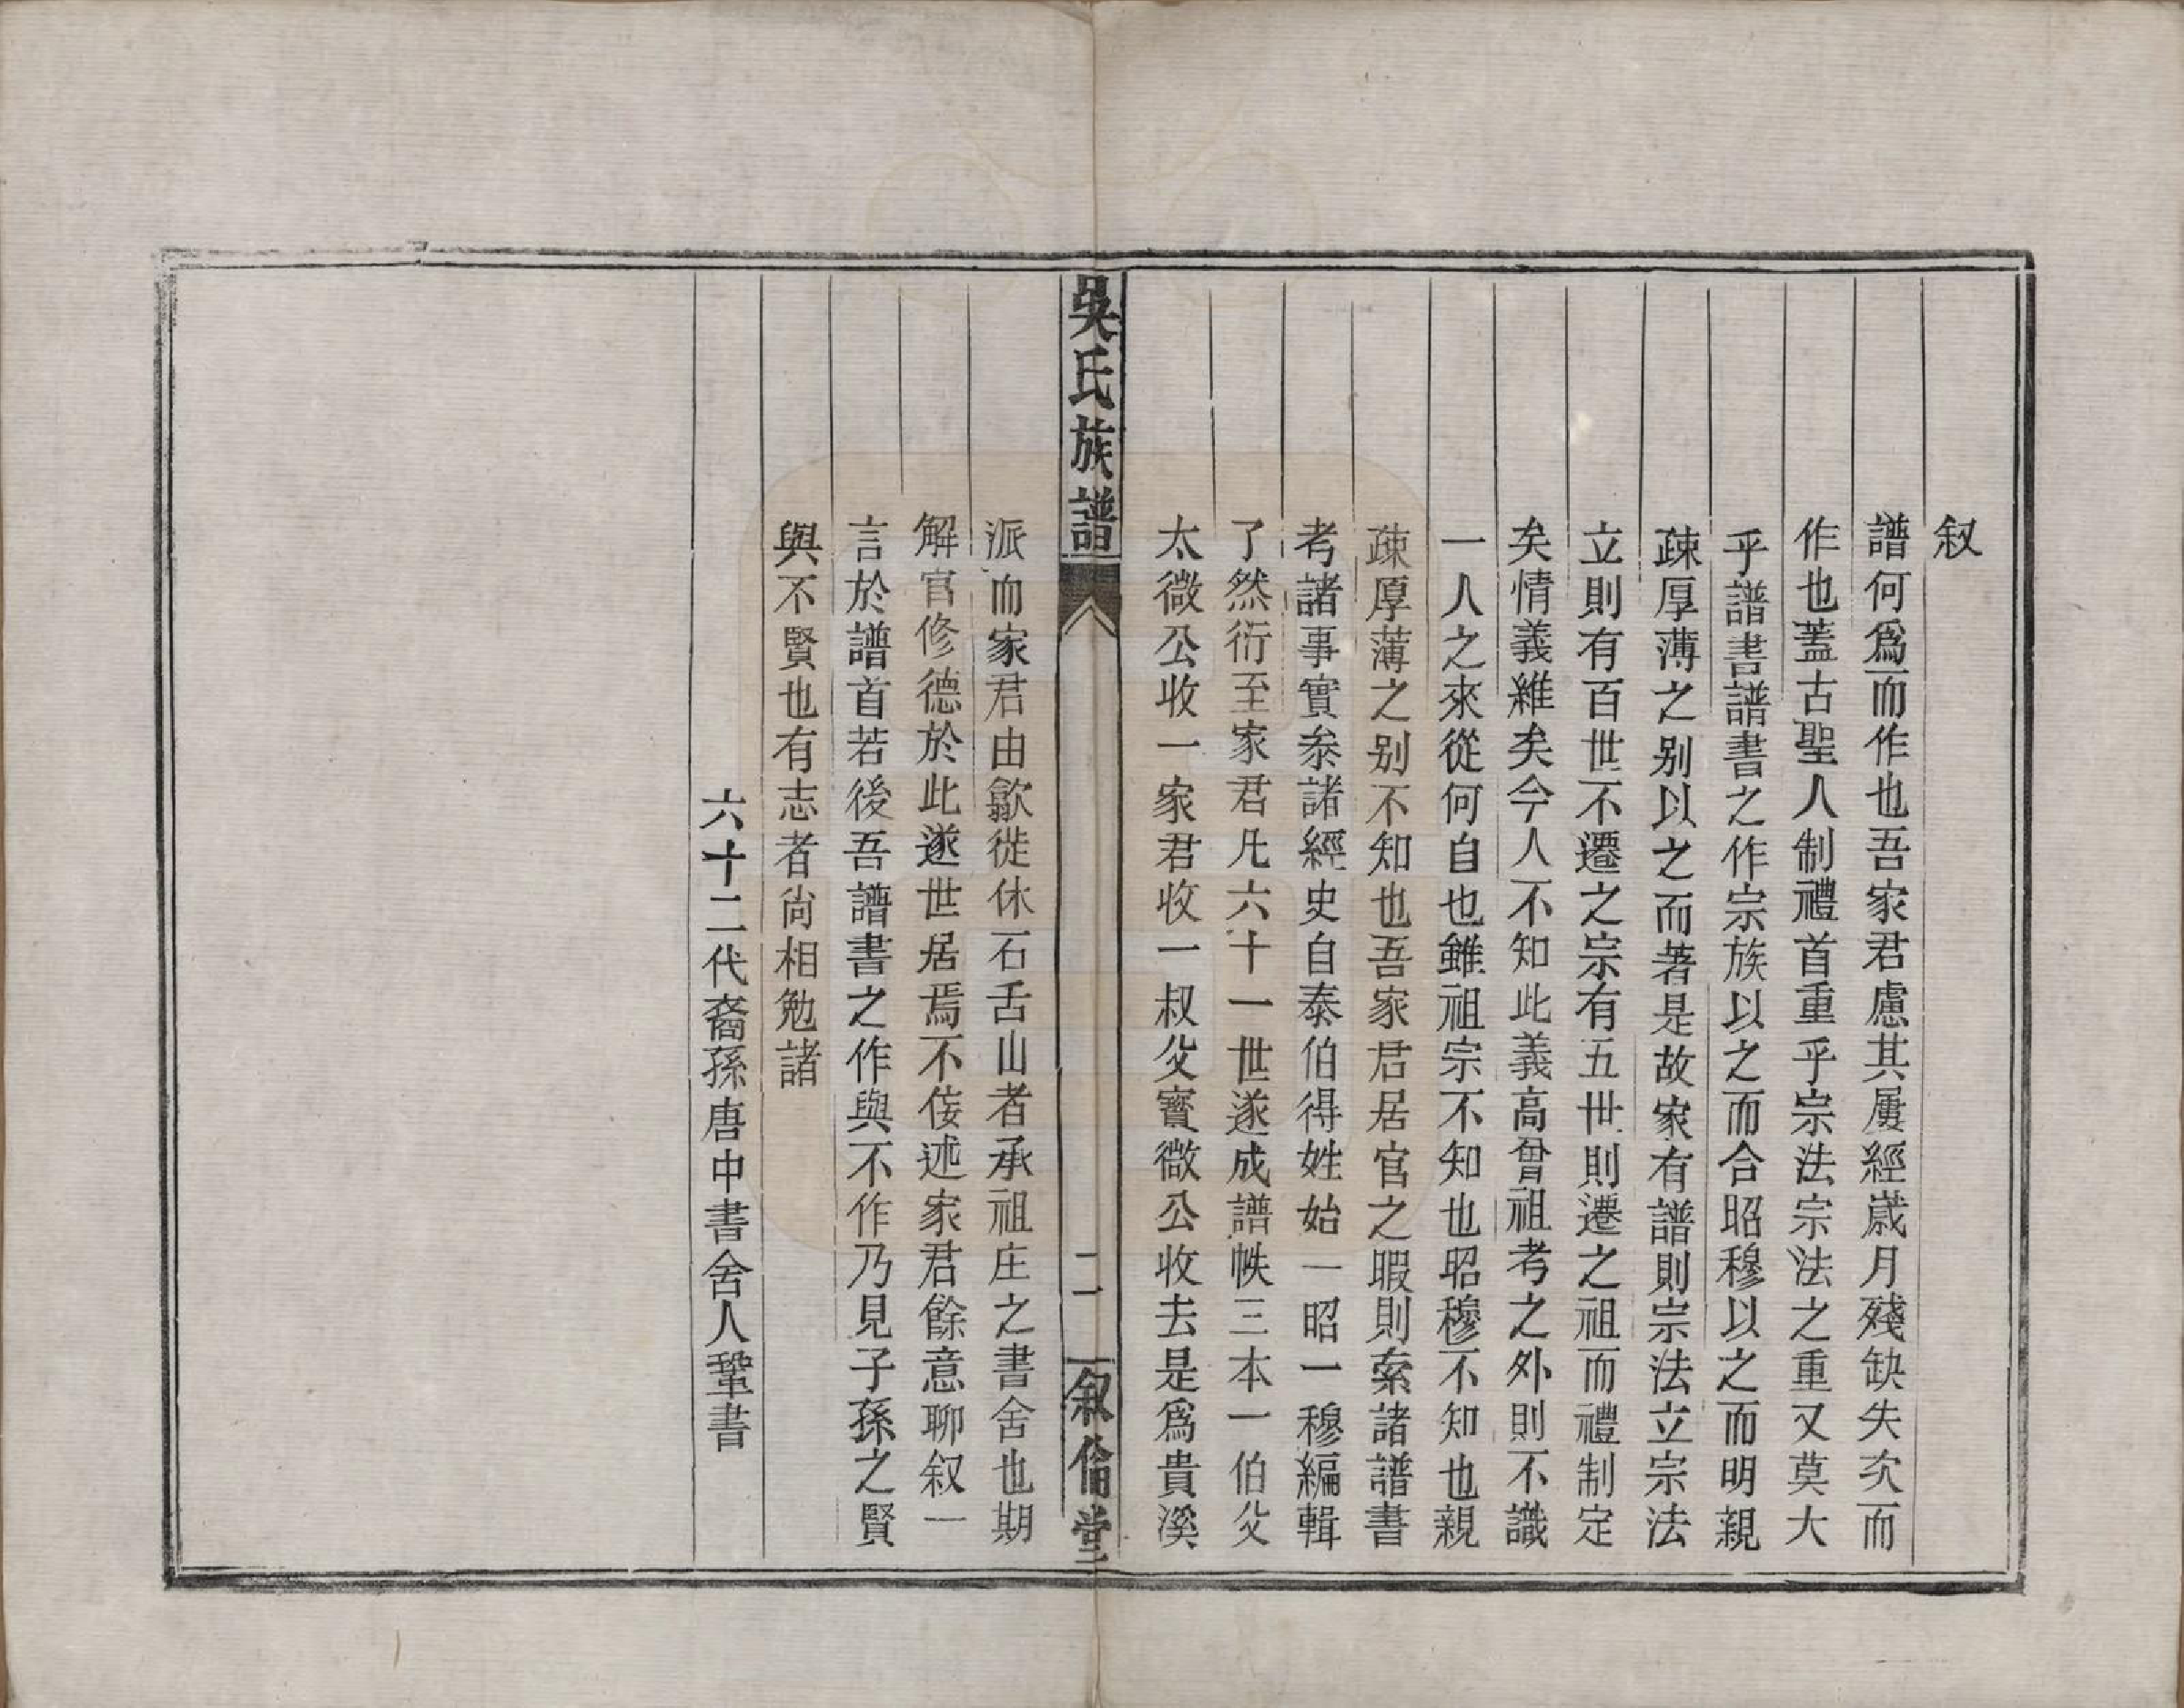 叙
譜何爲而作也吾家君慮其屢經歲月殘缺失次而
作也蓋古聖人制禮首重乎宗法宗法之重又莫大
乎譜書譜書之作宗族以之而合昭穆以之而明親
疎厚薄之别以之而著是故家有譜則宗法立宗法
立則有百世不遷之宗有五世則遷之祖而禮制定
矣情義維矣今人不知此義高曾祖考之外則不識
一人之來從何自也雖祖宗不知也昭穆不知也親
疎厚薄之别不知也吾家君居官之暇則索諸譜書
考諸事實叅諸經史自泰伯得姓始一昭一穆編輯
了然衍至家君凡六十一世遂成譜帙三本一伯父
太微公收一家君收一叔父寳微公收去是爲貴溪
吳氏族譜
二
叙倫堂
派而家君由歙徙休石舌山者承祖庄之書舍也期
解官修德於此遂世居焉不佞述家君餘意聊叙一
言於譜首若後吾譜書之作與不作乃見子孫之賢
與不賢也有志者尙相勉諸
六十二代裔孫唐中書舍人鞏書